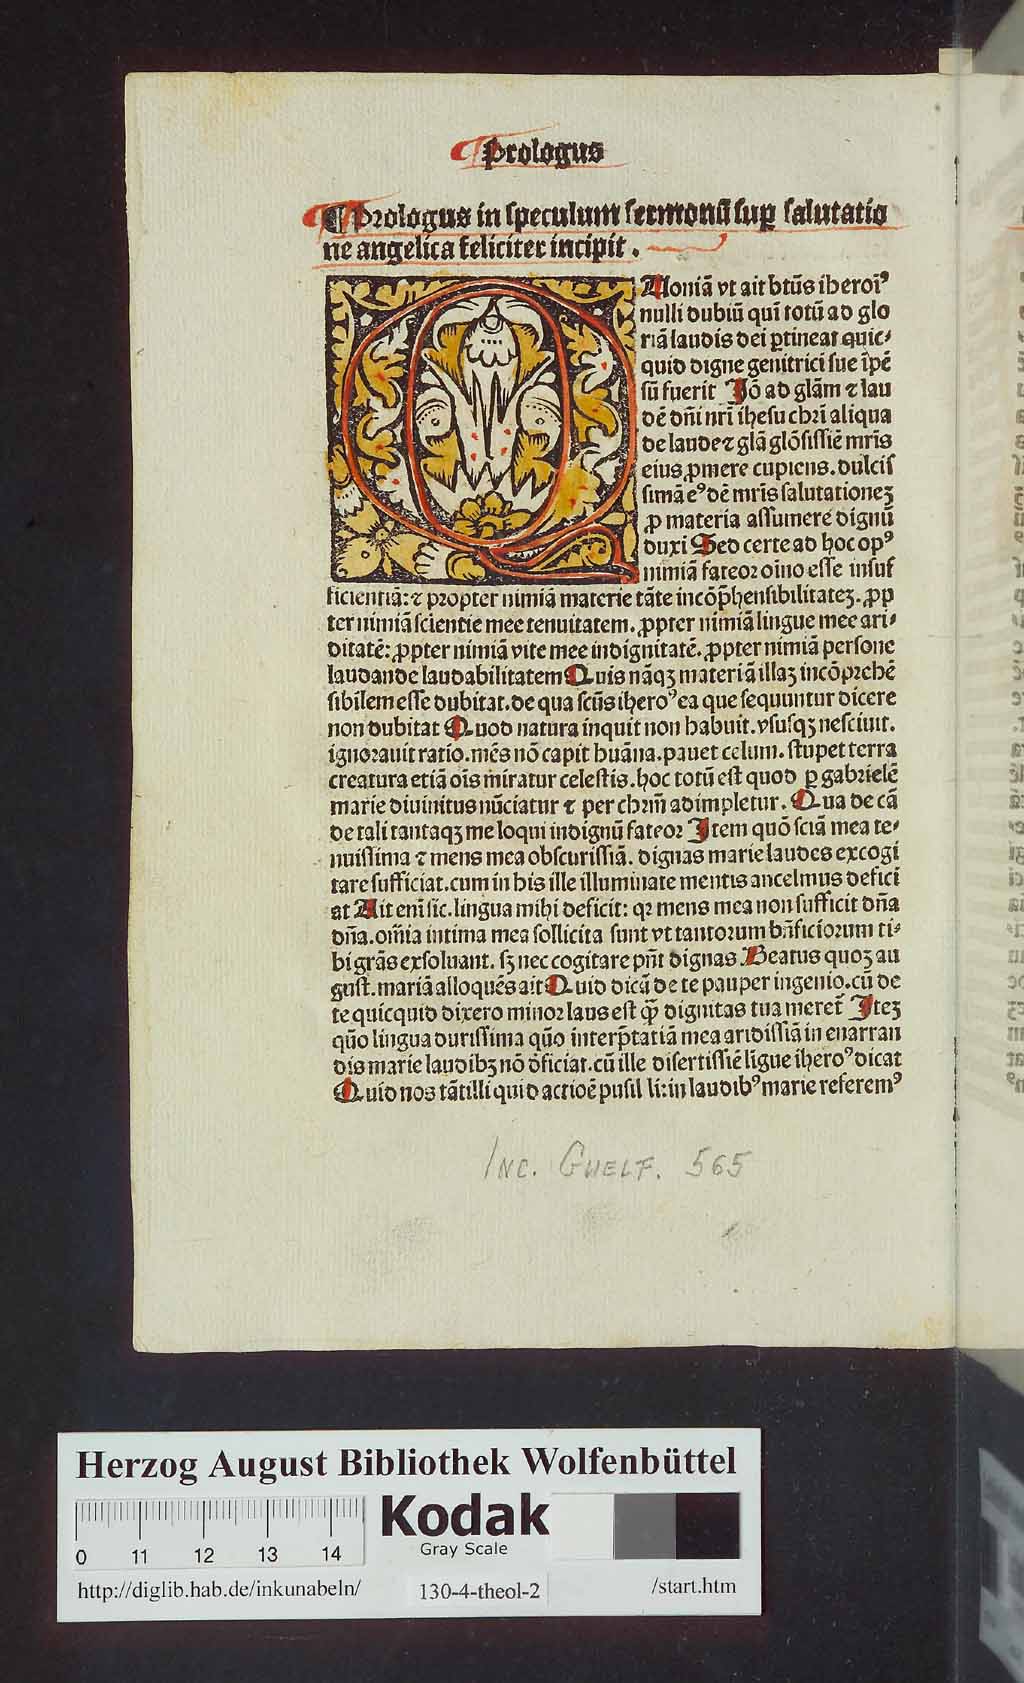 Prologus
¶ Prologus in speculum sermonū suꝑ salutatio
ne angelica feliciter incipit .
QUoniā vt ait btūs iheroīꝰ
nulli dubiū qui totū ad glo
riā laudis dei ꝑtineat quic⸗
quid digne genitrici sue īpē
sū fuerit Jō ad glām ⁊ lau
dē dn̄i nr̄i ihesu chr̄i aliqua
de laude ⁊ glā glōsissiē mr̄is
eius ꝓmere cupiens. dulcis
simā eꝰdē mr̄is salutationeꝫ
ꝓ materia assumere dignū
duxi Sed certe ad hoc opꝰ
nimiā fateor oīno esse insuf
ficientiā: ⁊ propter nimiā materie tāte incōp̄hensibilitateꝫ. ꝓp
ter nimiā scientie mee tenuitatem. ꝓpter nimiā lingue mee ari⸗
ditatē: ꝓpter nimiā vite mee indignitatē. ꝓpter nimiā persone
laudande laudabilitatem Quis nāqꝫ materiā illaꝫ incōprehē
sibilem esse dubitat. de qua scūs iheroꝰ ea que sequuntur dicere
non dubitat Quod natura inquit non habuit. vsusqꝫ nesciuit.
ignorauit ratio. mēs nō capit huāna. pauet celum. stupet terra
creatura etiā oīs miratur celestis. hoc totū est quod ꝑ gabrielē
marie diuinitus nūciatur ⁊ per chr̄m adimpletur. Qua de cā
de tali tantaqꝫ me loqui indignū fateor Item quō sciā mea te⸗
nuissima ⁊ mens mea obscurissiā. dignas marie laudes excogi
tare sufficiat. cum in his ille illuminate mentis ancelmus defici
at Ait enī sic. lingua mihi deficit: qꝛ mens mea non sufficit dn̄a
dn̄a. om̄ia intima mea sollicita sunt vt tantorum bn̄ficiorum ti⸗
bi grās exsoluant. sꝫ nec cogitare pn̄t dignas Beatus quoꝫ au
gust. mariā alloquēs ait Quid dicā de te pauper ingenio. cū de
te quicquid dixero minor laus est qꝫ̄ dignitas tua meret̄ Iteꝫ
quō lingua durissima quō interp̄tatiā mea aridissiā in enarran
dis marie laudibꝫ nō dēficiat. cū ille disertissiē ligue iheroꝰ dicat
Quid nos tātilli quid actioē pusilli: in laudibꝰ marie referemꝰ
Inc. Guelf. 565
Herzog August Bibliothek Wolfenbüttel
Kodak
Gray Scale
0 11 12 13 14
http://diglib.hab.de/inkunabeln/ 130-4-theol-2 /start.htm